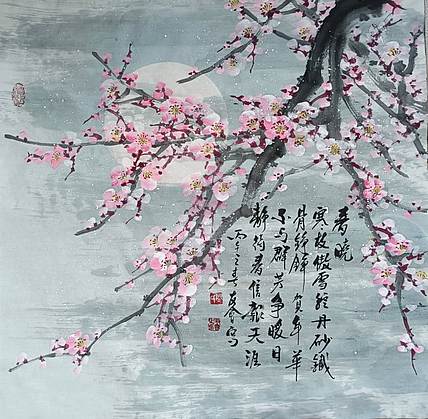 春曉
寒枝傲雪綻丹砂鐵
骨錚錚負年華
不與群芳爭暖日
靜約春信報天涯
之春 寫